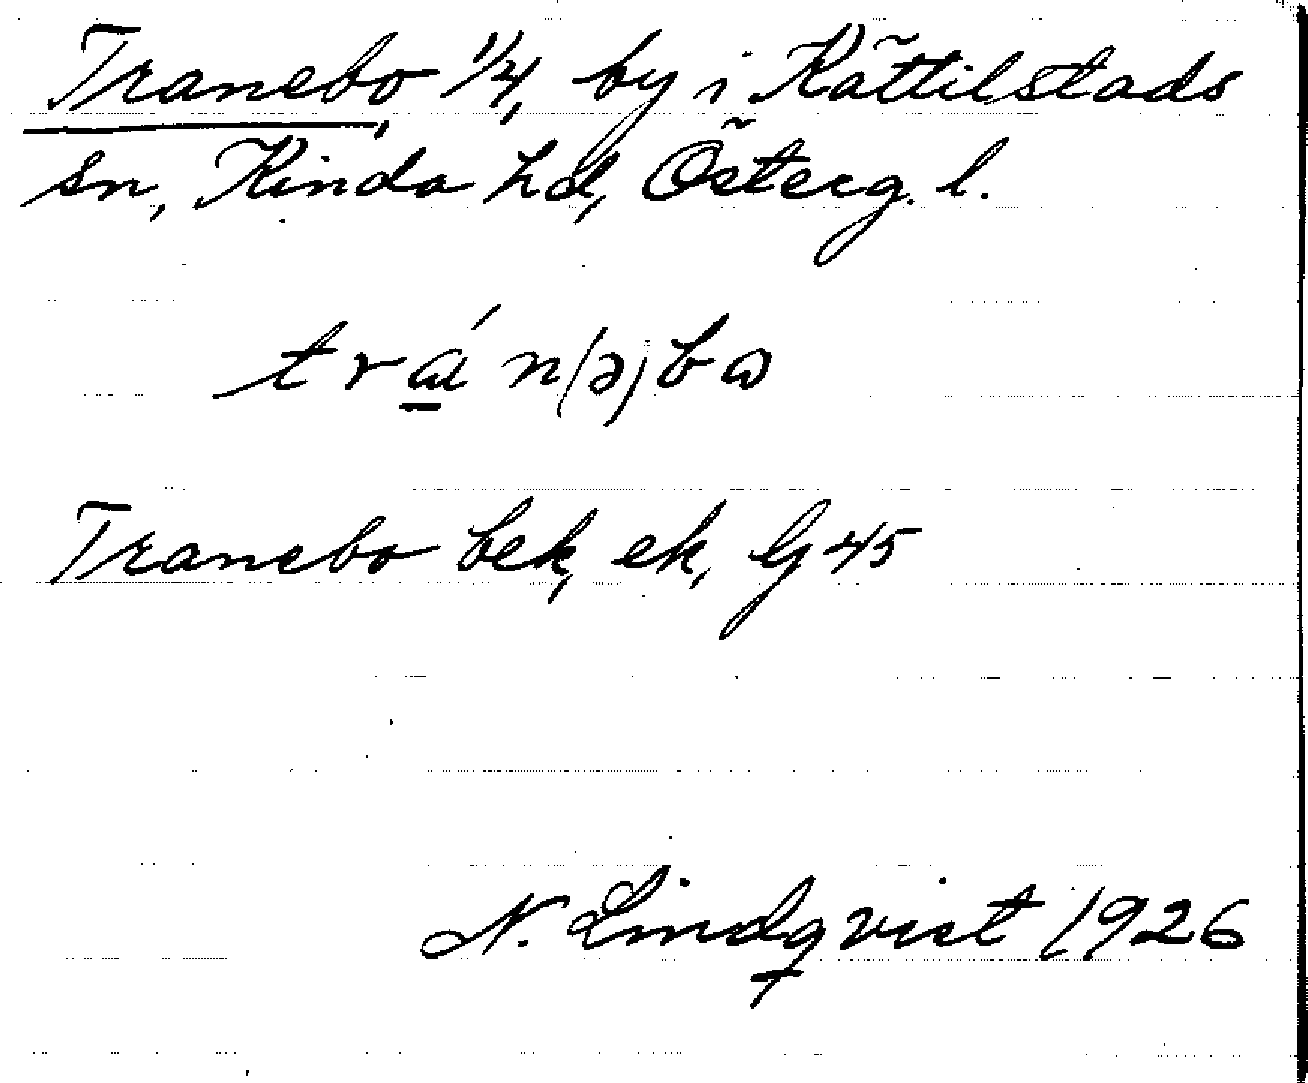 Tranebo 1/4, by i Kättilstads
sn, Kinda hd, Österg. l.
trán(ə)bω
Tranebo bek, ek, G 45
N. Lindqvist 1926